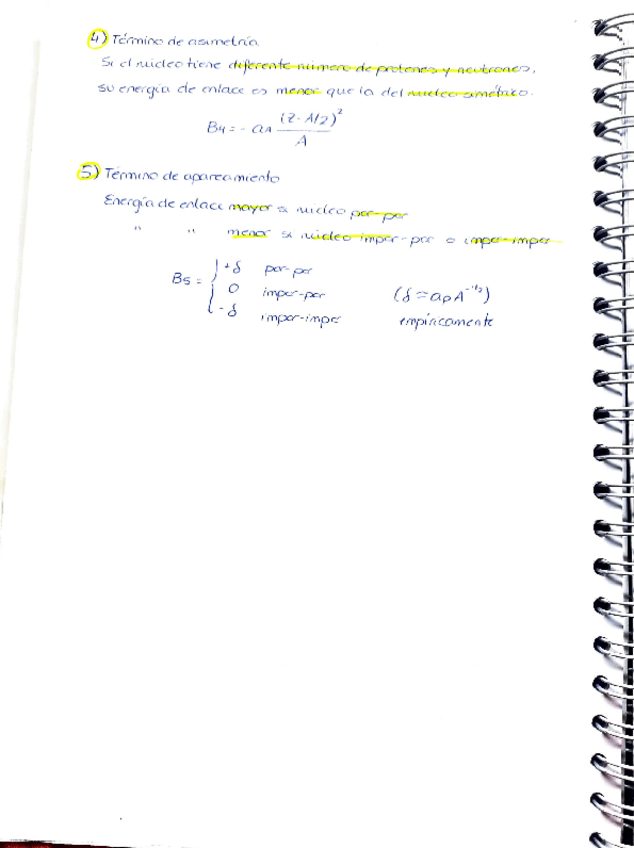 4) Término de asimetría
Si el núcleo tiene diferente número de protones y neutrones,
su energía de enlace es menor que la del núcleo simétrico.
B4 = - aA (Z - A/2)² / A
5) Término de apareamiento
Energía de enlace mayor si núcleo par-par
" " menor si núcleo impar-par o impar-impar
B5 = { +δ par-par
0 impar-par (δ = ap A^-1/2)
-δ impar-impar empíricamente